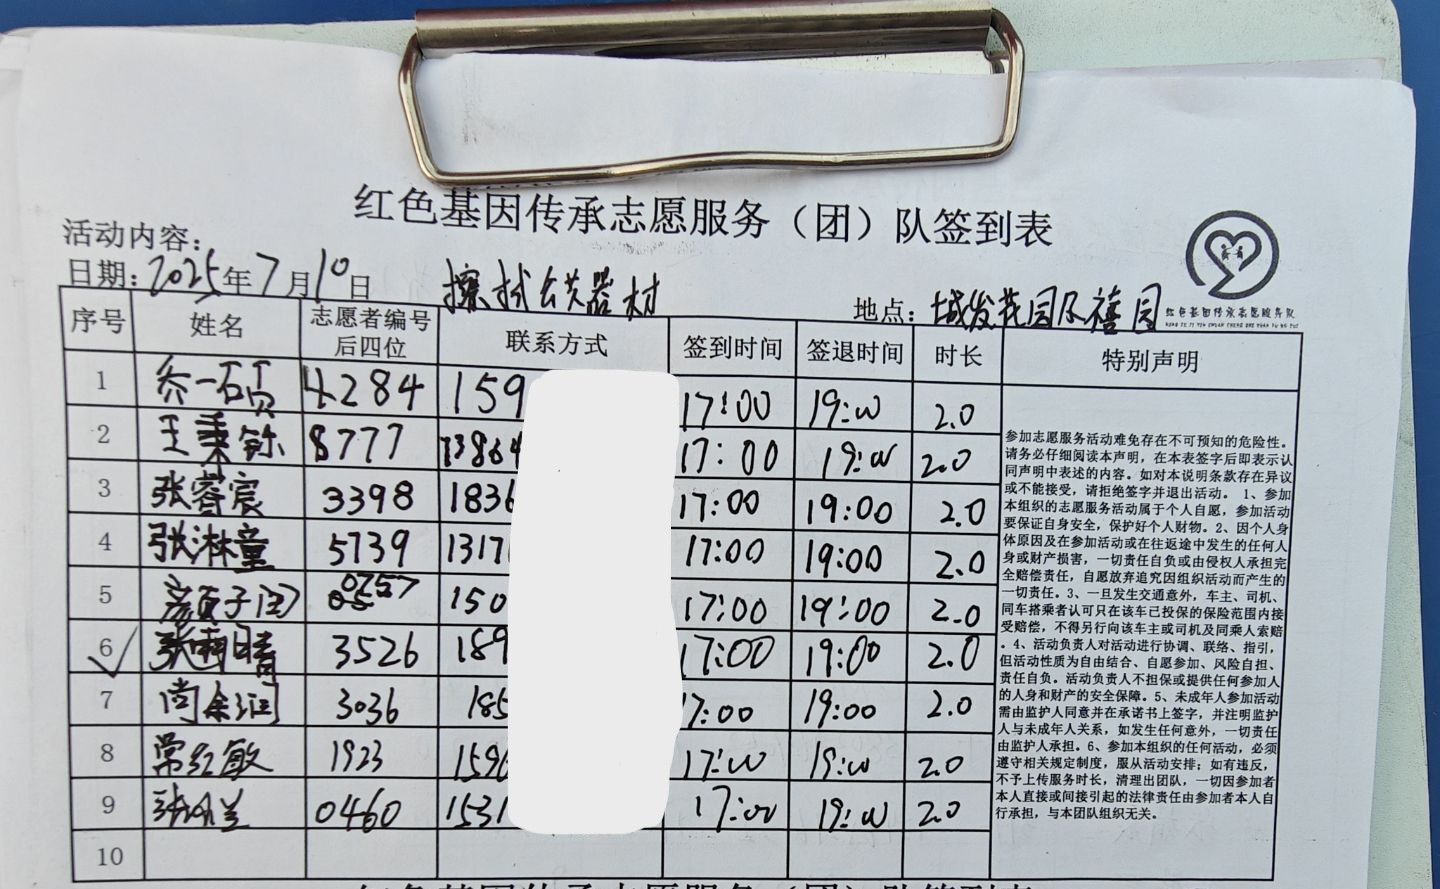 红色基因传承志愿服务（团）队签到表
活动内容：
日期：2025年7月10日 擦拭公共器材 地点：城发花园 禧园
红色基因传承志愿服务队
序号 姓名 志愿者编号后四位 联系方式 签到时间 签退时间 时长 特别声明
1 乔一 4284 159 17:00 19:00 2.0
2 王秉 8777 13864 17:00 19:00 2.0
3 张睿宸 3398 1836 17:00 19:00 2.0
4 张淋童 5739 1317 17:00 19:00 2.0
5 颜子 0757 150 17:00 19:00 2.0
6 张雨晴 3526 189 17:00 19:00 2.0
7 尚 3036 185 17:00 19:00 2.0
8 常红敏 1923 1590 17:00 19:00 2.0
9 张 兰 0460 1531 17:00 19:00 2.0
10
参加志愿服务活动难免存在不可预知的危险性。
请务必仔细阅读本声明，在本表签字后即表示认
同声明中表述的内容。如对本说明条款存在异议
或不能接受，请拒绝签字并退出活动。 1、参加
本组织的志愿服务活动属于个人自愿，参加活动
要保证自身安全，保护好个人财物。2、因个人身
体原因及在参加活动或在往返途中发生的任何人
身或财产损害，一切责任自负或由侵权人承担完
全赔偿责任，自愿放弃追究因组织活动而产生的
一切责任。3、一旦发生交通意外，车主、司机、
同车搭乘者认可只在该车已投保的保险范围内接
受赔偿，不得另行向该车主或司机及同乘人索赔
。4、活动负责人对活动进行协调、联络、指引，
但活动性质为自由结合、自愿参加、风险自担、
责任自负。活动负责人不担保或提供任何参加人
的人身和财产的安全保障。5、未成年人参加活动
需由监护人同意并在承诺书上签字，并注明监护
人与未成年人关系，如发生任何意外，一切责任
由监护人承担。6、参加本组织的任何活动，必须
遵守相关规定制度，服从活动安排；如有违反，
不予上传服务时长，清理出团队，一切因参加者
本人直接或间接引起的法律责任由参加者本人自
行承担，与本团队组织无关。
红色基因传承志愿服务（团）队签到表